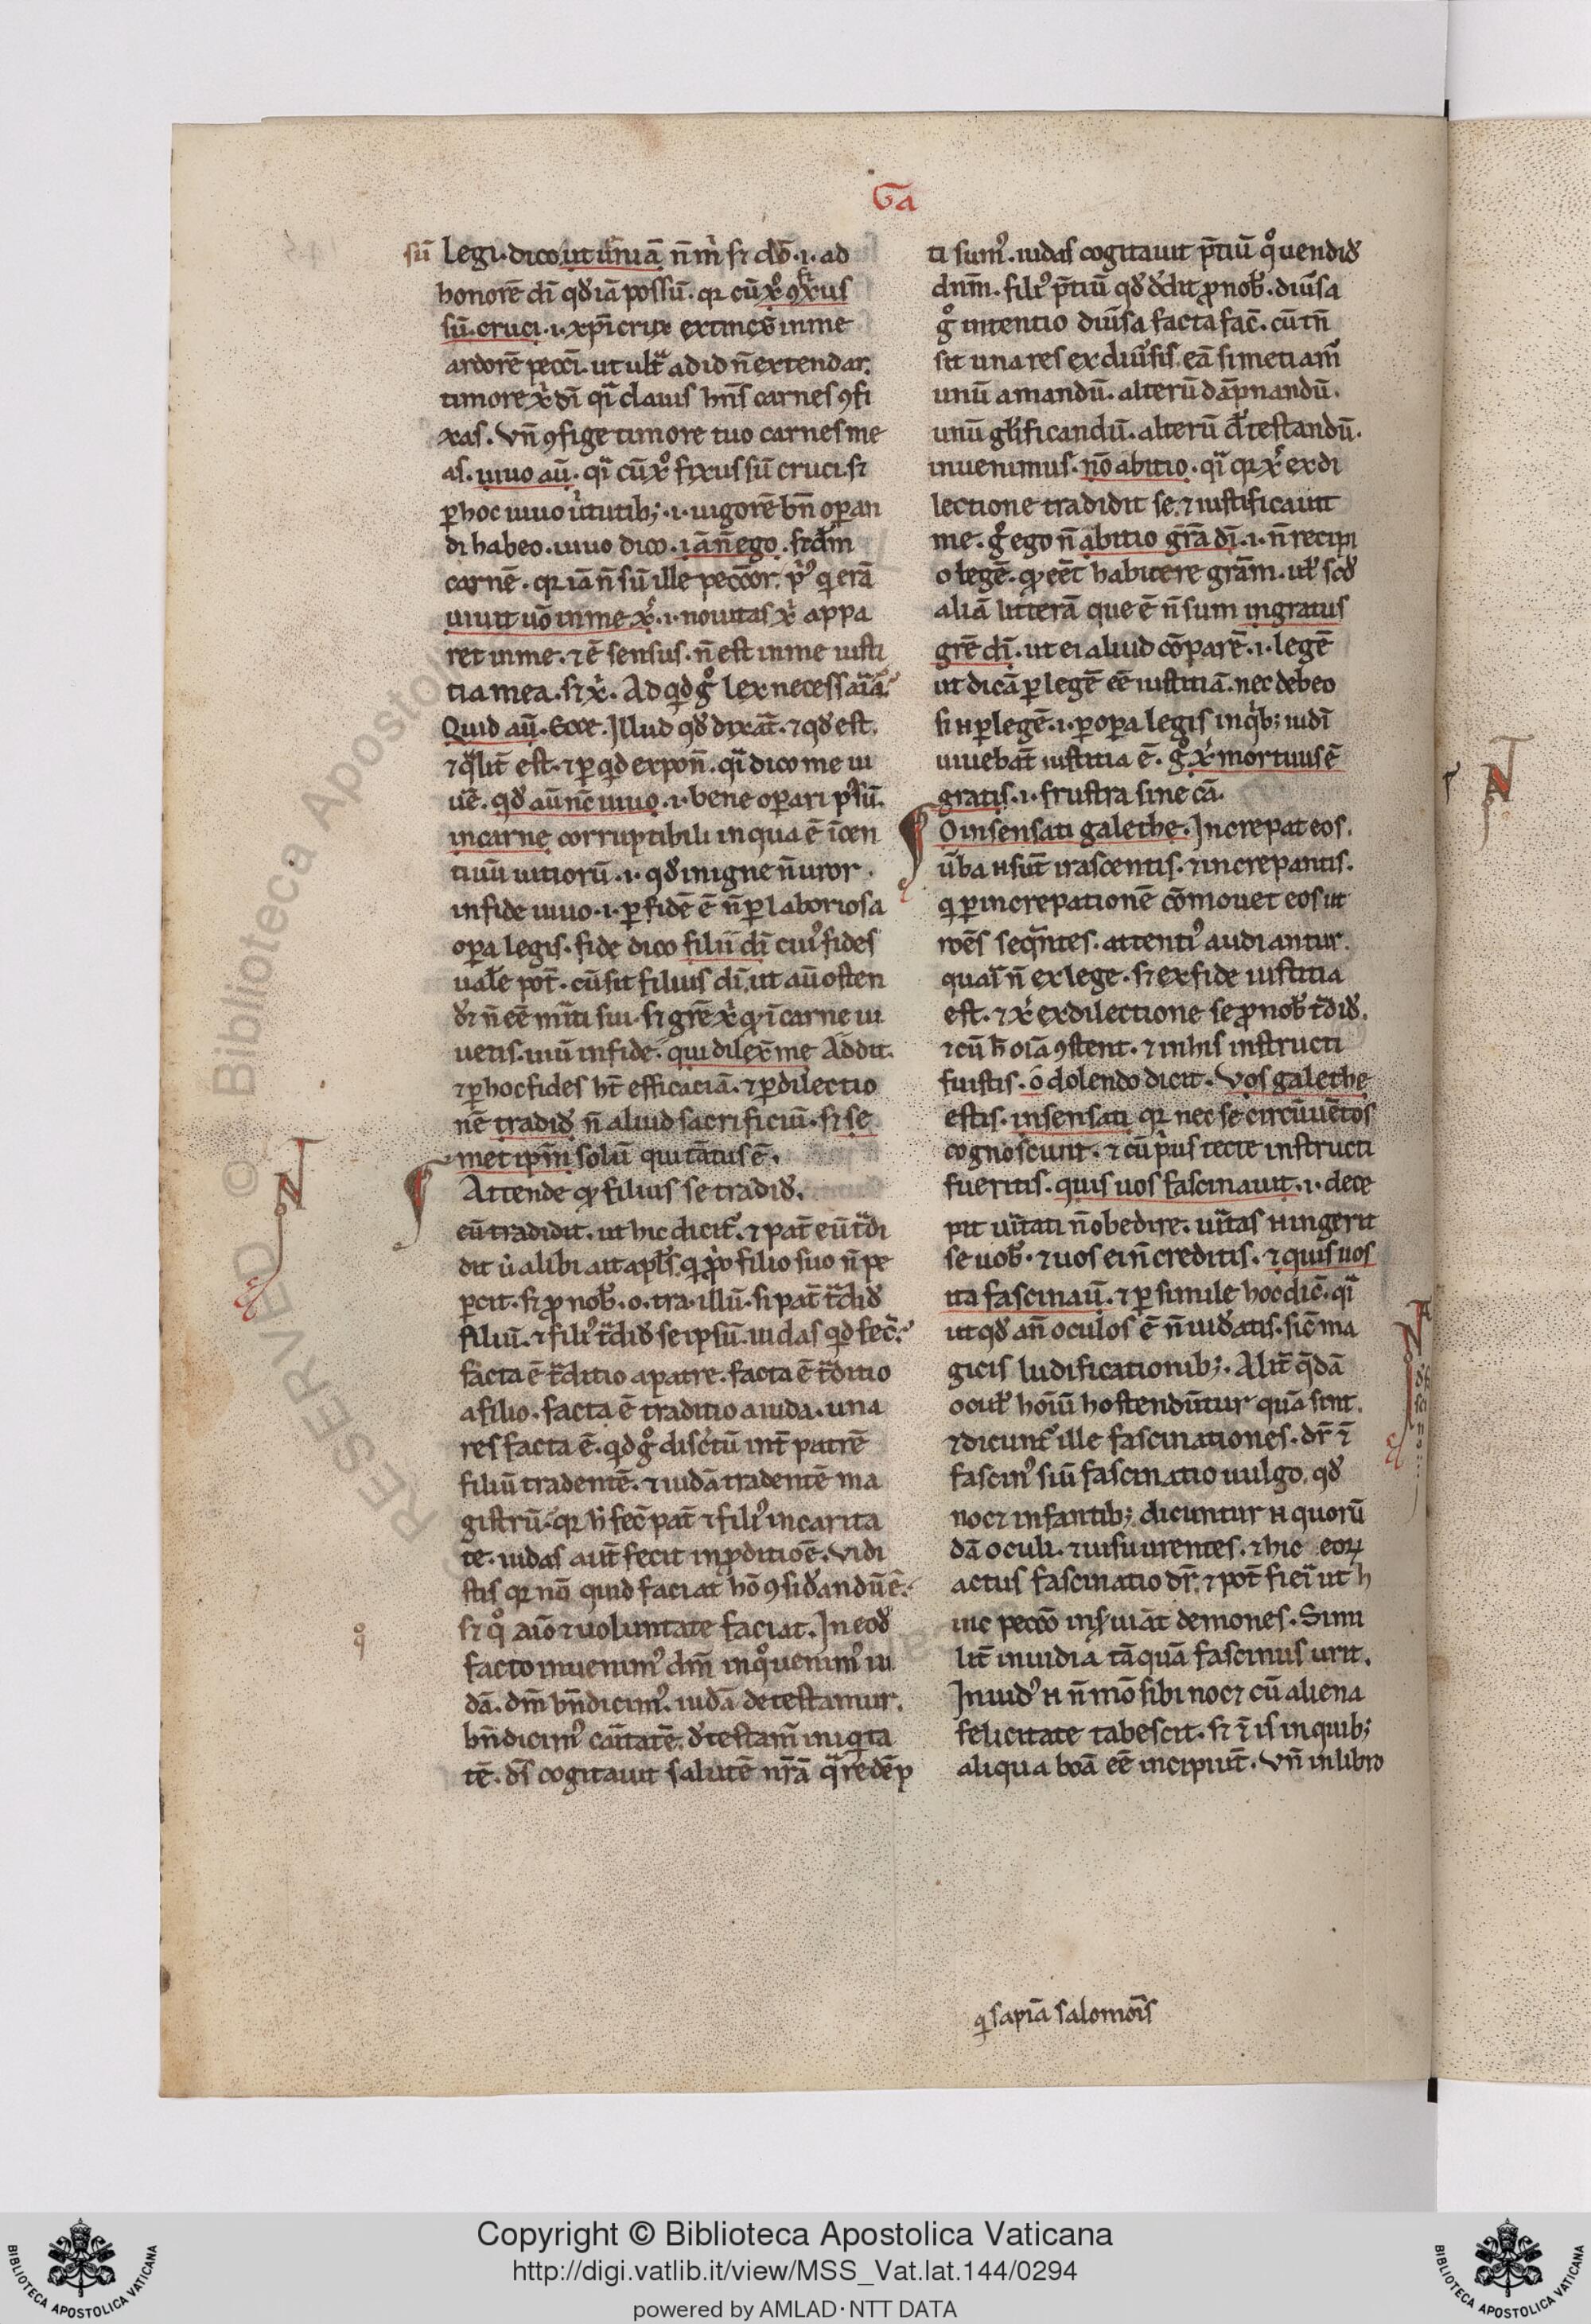 Ga
sū legi. dico ut uiuā n̄ m̄ s; dō .i. ad
honorē dī qd iā possū. qr cū xo 9fixus
sū. cruci .i. xpī crux extinc̄s in me
ardorē peccī. ut ult̄ ad id n̄ extendar.
timore xi dī q̄ clauis hn̄s carnes 9fi
xas. Vn̄ 9fige timore tuo carnes me
as. uiuo aū. q̄ cū xo fixus sū cruci. s;
p hoc uiuo ūtutib; .i. uigorē bn̄ operan
di habeo. uiuo dico. iā n̄ ego. scdm
carnē. qr iā n̄ sū ille peccor. p' q erā
uiuit uō in me x̄. .i. nouitas xi appa
ret in me. ⁊ ē sensus. n̄ est in me iusti
tia mea. s; xi. Ad qd go lex necessaria.
Quid aū. Ecce. Illud qd dixat. ⁊ qd est.
⁊ qlit est. ⁊ p qd expon̄. q̄ dico me ui
uē. qd aū nc̄ uiuo .i. bene operari psū.
in carne corruptibili in qua ē icen
tiuū uitiorū .i. qd in igne n̄ uror.
in fide uiuo .i. p fidē ē n̄ p laboriosa
opera legis. fide dico filii dī cui' fides
uale pot̄. cū sit filius dī. ut aū osten
dr̄ n̄ eē miti sui. s; grē xi q ī carne ui
ueris. uiū in fide. qui dilex̄ me Addit.
⁊ p hoc fides ht̄ efficaciā. ⁊ p dilectio
nē tradid n̄ aliud sacrificiū. s; se
met ipm̄ solū qui tātus ē.
Attende q filius se tradid.
eū tradidit. ut hic dicit̄. ⁊ pat̄ eū t̄di
dit ū alibi ait apls. q pprio filio suo n̄ pe
pcit. s; p nob. o. tra. illū. si pat̄ t̄did
filiū. ⁊ fili' t̄did se ipsū. iudas qd fec̄.
facta ē t̄ditio a patre. facta ē t̄ditio
a filio. facta ē traditio a iuda. una
res facta ē. qd go discrtū int̄ patrē
filiū tradentē. ⁊ iudā tradentē ma
gistrū. qr h fec̄ pat̄ ⁊ fili' in carita
te. iudas aut̄ fecit in pditiōē. Vidi
stis qr nō quid faciat hō 9sidandū ē.
s; qo aīo ⁊ uoluntate faciat. In eod
facto inuenim' dm̄ in qo uenim' iu
dā. dm̄ bn̄dicim'. iudā detestamur.
bn̄dicim' cāitatē. detestam̄ iniqta
tē. ds̄ cogitauit salutē nr̄ā q̄ redēp
ti sum'. iudas cogitauit p̄tiū qo uendid
dnm̄. fili' p̄tiū qd ddit p nob. diūsa
go intentio diūsa facta fac̄. cū tn̄
sit una res ex diūsis. eā si metiam̄
unū amandū. alterū dāpnandū.
unū glificandū. alterū detestandū.
inuenimus. nō abitio. q̄ qr xi ex di
lectione tradidit se. ⁊ iustificauit
me. go ego n̄ abitio grā dī .i. n̄ recipi
o legē. q eēt habicere grām. ul scd
aliā litterā que ē n̄ sum ingratus
grē dī. ut ei aliud cōparē .i. legē
ut dicā p legē eē iustitiā. nec debeo
si n p legē .i. p opera legis in qb; iudi
uiuebat̄ iustitia ē. go x̄ mortuus ē
gratis .i. frustra sine cā.
O insensati galethe. Increpat eos.
ūba n sūt irascentis. ⁊ increpantis.
q p increpationē cōmouet eos ut
rōēs seqn̄tes. attenti' audiantur.
quasi n̄ ex lege. s; ex fide iustitia
est. ⁊ xi ex dilectione se p nob t̄did.
⁊ cū h oīā 9stent. ⁊ in his instructi
fuistis. ō dolendo dicit. Vos galethe
estis. insensati qr nec se circūuētos
cognoscunt. ⁊ cū prius recte instructi
fueritis. quis uos fascinauit .i. dece
pit uitati n̄ obedire. uitas n ingerit
se uob. ⁊ uos ei n̄ creditis. ⁊ quis uos
ita fascinaū. ⁊ p simile hoc dic̄. q̄
ut qd an̄ oculos ē n̄ uideatis. sic̄ ma
gicis ludificationib;. Alit̄ qdā
ocul hoīū hostendūtur quā sint.
⁊ dicunt̄ ille fascinationes. dr̄ ⁊
fascin' siū fascinatio uulgo. qd
noc; infantib; dicuntur n quorū
dā oculi. ⁊ uisu urentes. ⁊ hic eoꝝ
actus fascinatio dr̄. ⁊ pot̄ fieri ut h
uic peccō inseruiāt demones. Simi
lit̄ inuidia tāquā fascinus urit.
Inuid' n n̄ mō sibi noc; cū aliena
felicitate tabescit. s; ⁊ is in quib;
aliqua boā eē incipiūt. Vn̄ in libro
q sapiā salomōis
Copyright © Biblioteca Apostolica Vaticana
http://digi.vatlib.it/view/MSS_Vat.lat.144/0294
powered by AMLAD·NTT DATA